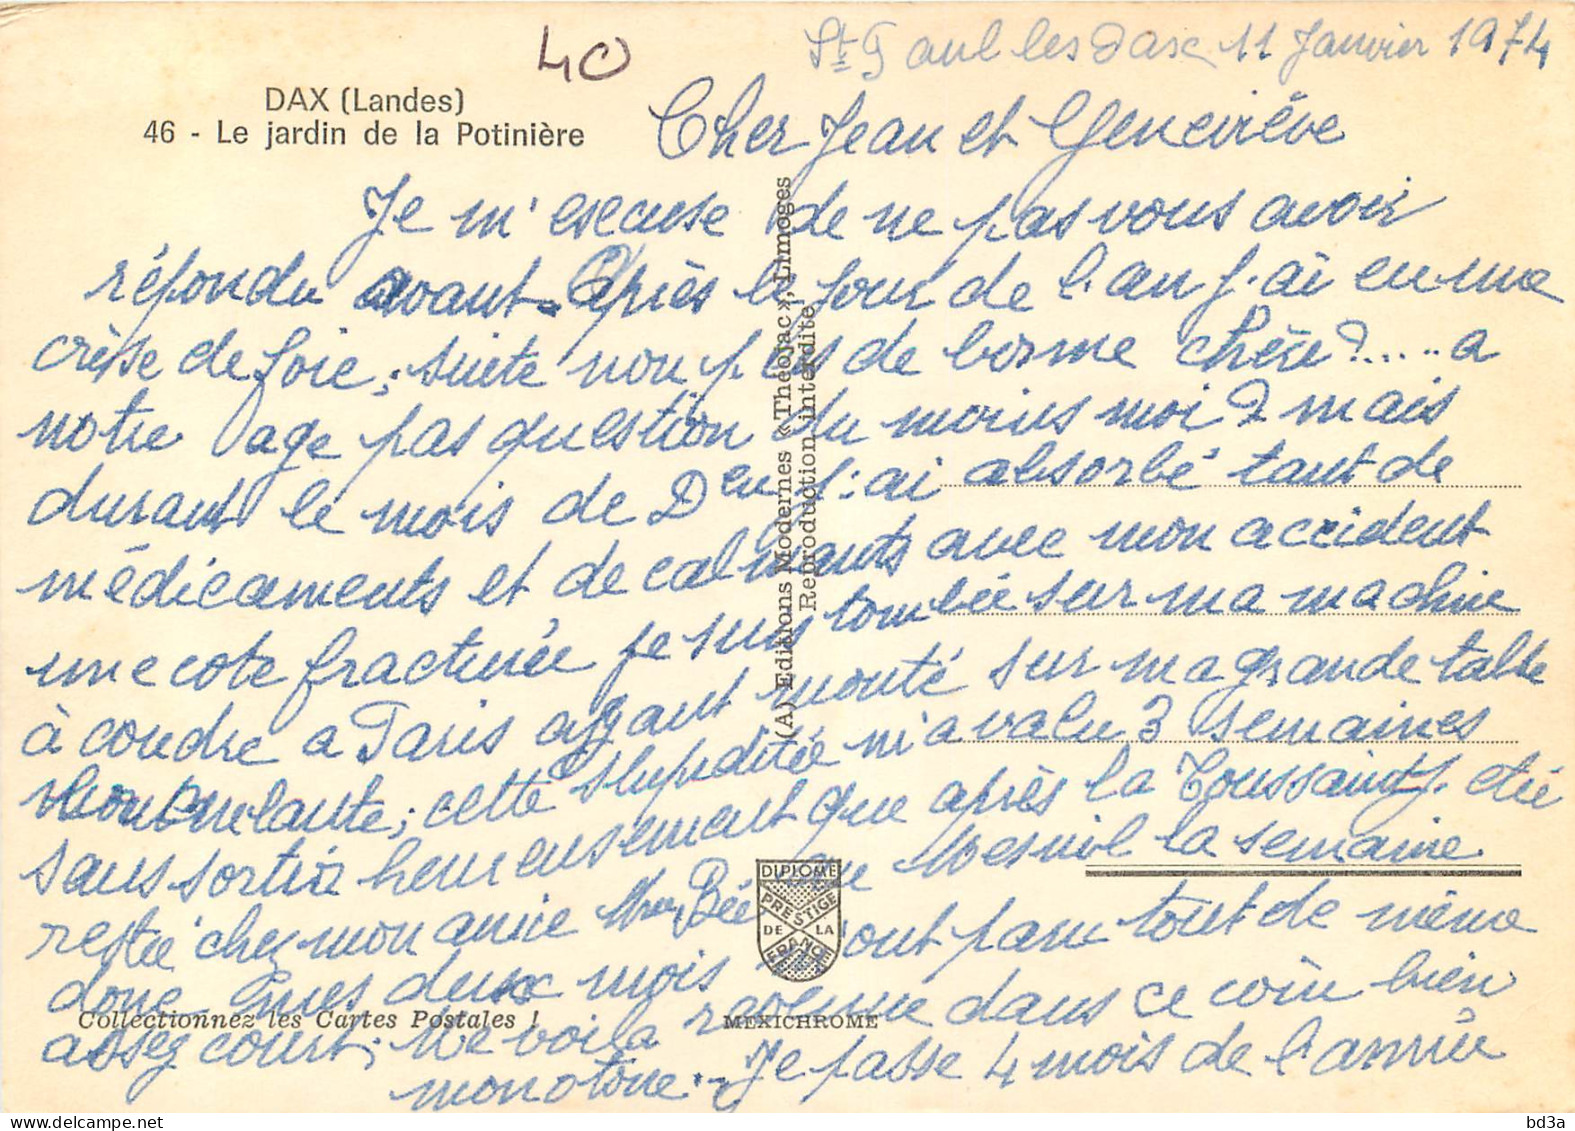 40
St Paul les Dax 11 Janvier 1974
DAX (Landes)
46 - Le jardin de la Potinière
Cher Jean et Geneviève
Je m'escuse de ne pas vous avoir
répondu avant. Après le jour de l'an j'ai eu une
crèise de foie; suite non plus de bonne chère?.....a
notre age pas question du moins moi? mais
durant le mois de Dbre j'ai absorbé tant de
médicaments et de calmants avec mon accident
une cote fracturée je suis tombée sur ma machine
à coudre a Paris ayant monté sur ma grande table
cette stupiditée m'a valu 3 semaines
sans sortir heureusement que après la Toussaint j. étée
restée chez mon amie Mme Bée au Mesnil la semaine
donc mes deux mois ont paru tout de même
assez court; me voila revenue dans ce coin bien
monotone.- Je passe 4 mois de l'année
(A) Editions Modernes «Théojac», Limoges
Reproduction interdite
DIPLOME
PRESTIGE
DE LA
FRANCE
Collectionnez les Cartes Postales !
MEXICHROME
bd3a